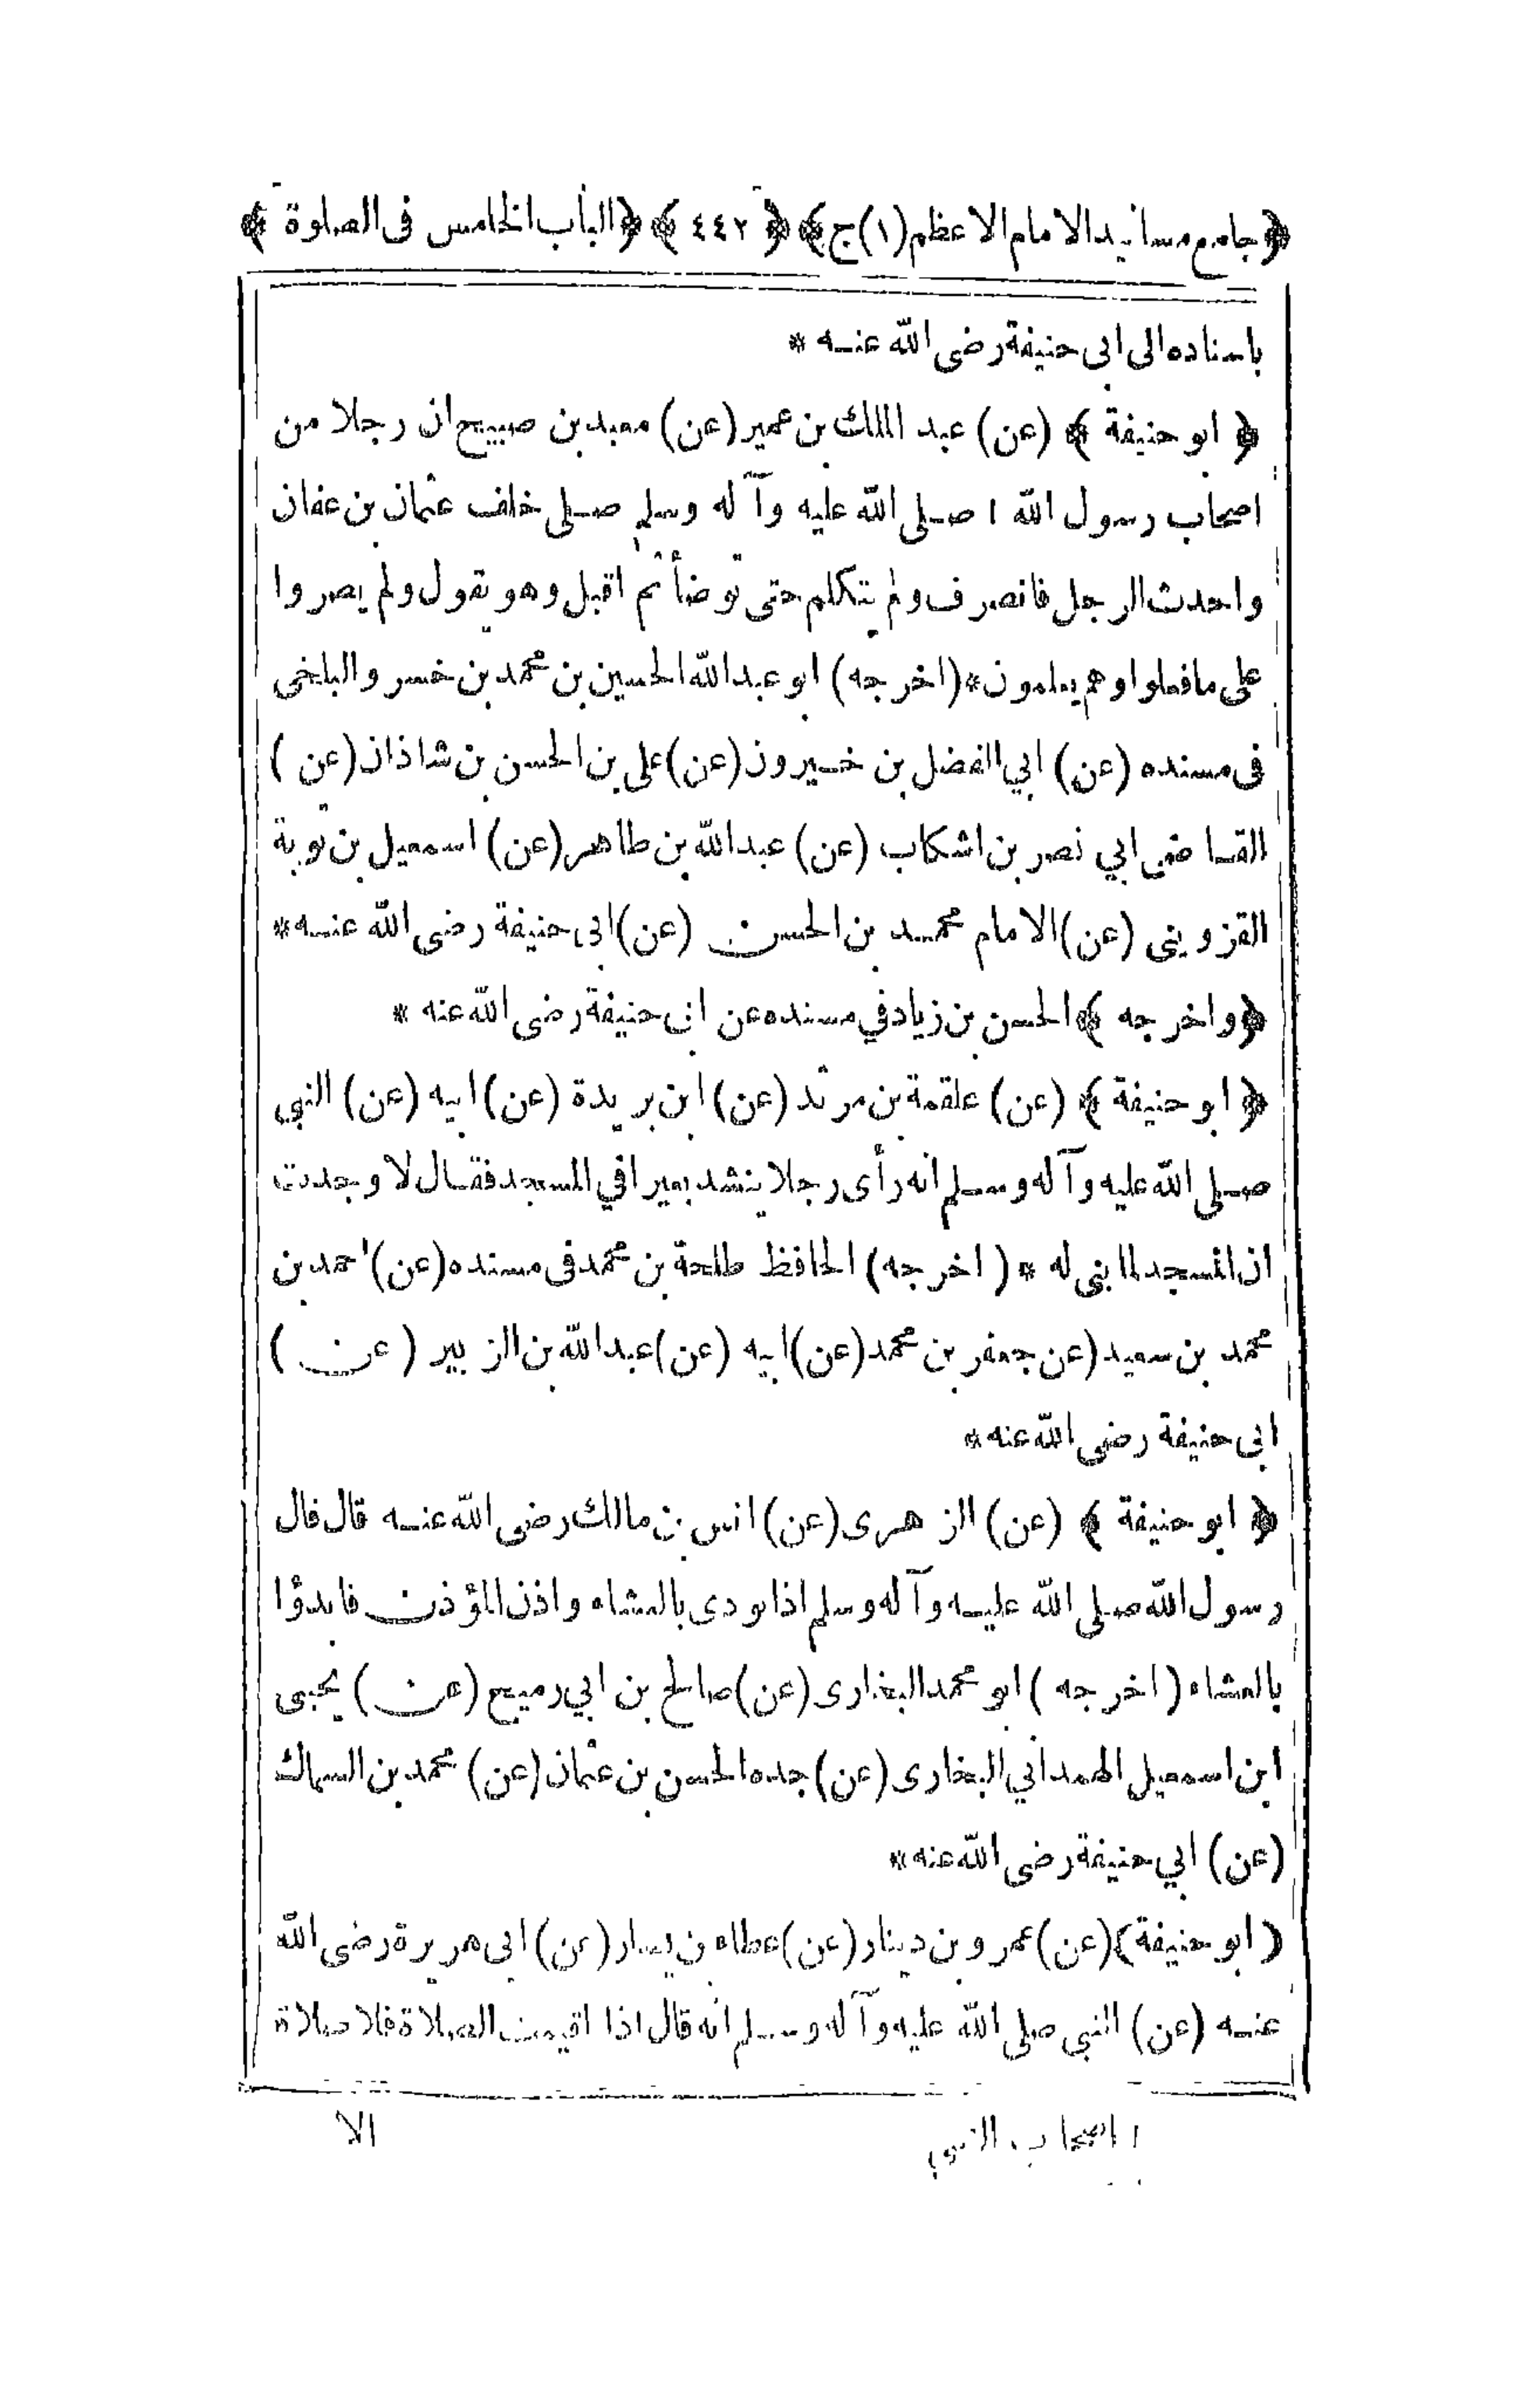 ﴿جامع مسانيد الامام الاعظم(١)ج﴾ ﴿٤٤٢﴾ ﴿الباب الخامس فى الصلوة﴾
باسناده الى ابى حنيفة رضى الله عنه *
﴿ ابو حنيفة ﴾ (عن) عبد الملك بن عمير (عن) معبد بن صبيح ان رجلا من
اصحاب رسول الله ١ صلى الله عليه وآله وسلم صلى خلف عثمان بن عفان
واحدث الرجل فانصرف ولم يتكلم حتى توضأ ثم اقبل وهو يقول ولم يصروا
على ما فعلوا وهم يعلمون * (اخرجه) ابو عبد الله الحسين بن محمد بن خسرو البلخى
فى مسنده (عن) ابي الفضل بن خيرون (عن) على بن الحسن بن شاذان (عن)
القاضى ابي نصر بن اشكاب (عن) عبد الله بن طاهر (عن) اسمعيل بن توبة
القزوينى (عن) الامام محمد بن الحسن (عن) ابى حنيفة رضى الله عنه *
﴿واخرجه﴾ الحسن بن زياد في مسنده عن ابى حنيفة رضى الله عنه *
﴿ ابو حنيفة ﴾ (عن) علقمة بن مرثد (عن) ابن بريدة (عن) ابيه (عن) النبي
صلى الله عليه وآله وسلم انه رأى رجلا ينشد بعيرا في المسجد فقال لا وجدت
ان المسجد لما بنى له * (اخرجه) الحافظ طلحة بن محمد فى مسنده (عن) احمد بن
محمد بن سعيد (عن جعفر بن محمد (عن) ابيه (عن) عبد الله بن الزبير (عن)
ابى حنيفة رضى الله عنه *
﴿ ابو حنيفة ﴾ (عن) الزهرى (عن) انس بن مالك رضى الله عنه قال قال
رسول الله صلى الله عليه وآله وسلم اذا نودى بالعشاء واذن المؤذن فابدؤا
بالعشاء (اخرجه) ابو محمد البخارى (عن) صالح بن ابي رميح (عن) يحيى
ابن اسمعيل الهمداني البخارى (عن) جده الحسن بن عثمان (عن) محمد بن السماك
(عن) ابي حنيفة رضى الله عنه *
(ابو حنيفة) (عن) عمرو بن دينار (عن) عطاء بن يسار (عن) ابى هريرة رضى الله
عنه (عن) النبي صلى الله عليه وآله وسلم انه قال اذا اقيمت الصلاة فلا صلاة
١ اصحاب النبي
الا